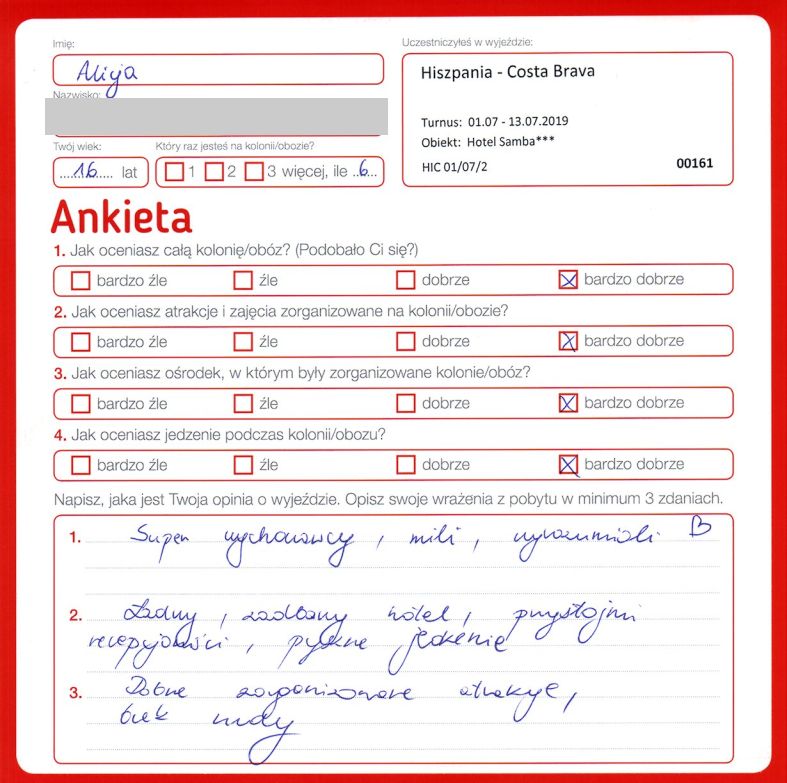 Imię:
Alicja
Nazwisko:
Twój wiek:
16 lat
Który raz jesteś na kolonii/obozie?
1 2 3 więcej, ile 6
Uczestniczyłeś w wyjeździe:
Hiszpania - Costa Brava
Turnus: 01.07 - 13.07.2019
Obiekt: Hotel Samba***
HIC 01/07/2 00161
Ankieta
1. Jak oceniasz całą kolonię/obóz? (Podobało Ci się?)
bardzo źle źle dobrze bardzo dobrze
2. Jak oceniasz atrakcje i zajęcia zorganizowane na kolonii/obozie?
bardzo źle źle dobrze bardzo dobrze
3. Jak oceniasz ośrodek, w którym były zorganizowane kolonie/obóz?
bardzo źle źle dobrze bardzo dobrze
4. Jak oceniasz jedzenie podczas kolonii/obozu?
bardzo źle źle dobrze bardzo dobrze
Napisz, jaka jest Twoja opinia o wyjeździe. Opisz swoje wrażenia z pobytu w minimum 3 zdaniach.
1. Super wychowawcy, mili, wyrozumiali
2. Ładny, zadbany hotel, przystojni
recepcjoniści, pyszne jedzenie
3. Dobrze zorganizowane atrakcje,
brak nudy